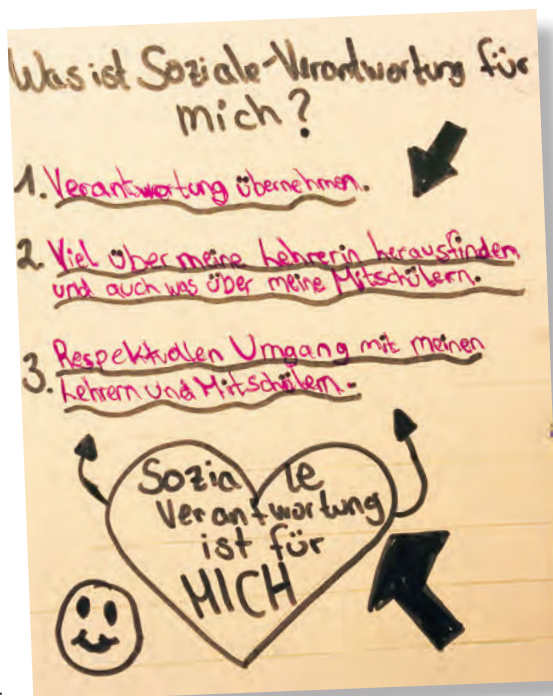 Was ist Soziale-Verantwortung für
mich?
1. Verantwortung übernehmen.
2. Viel über meine Lehrerin herausfinden
und auch was über meine Mitschülern.
3. Respektvollen Umgang mit meinen
Lehrern und Mitschülern.
Soziale
Verantwortung
ist für
MICH